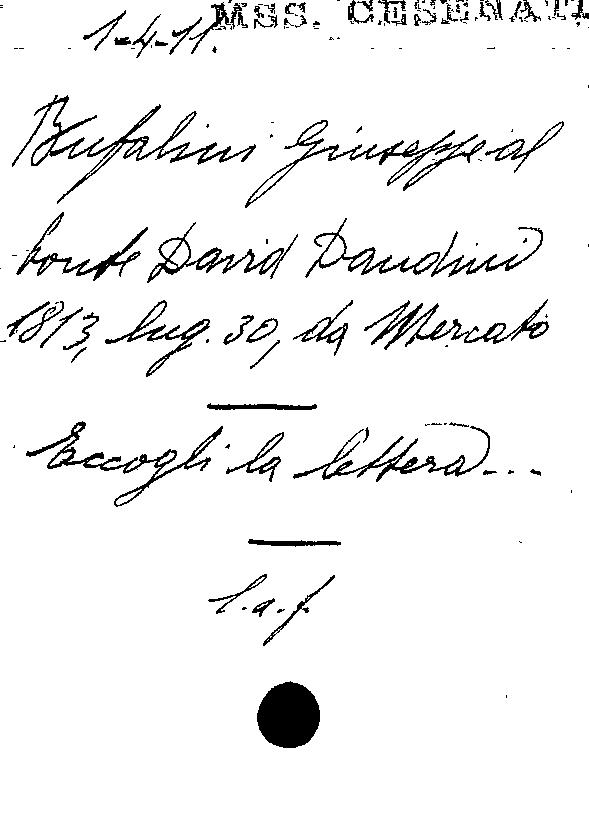 MSS. CESENATI
1-4-11.
Bufalini Giuseppe al
Conte David Dandini
1813, lug. 30, da Mercato
Eccogli la lettera...
l.a.f.